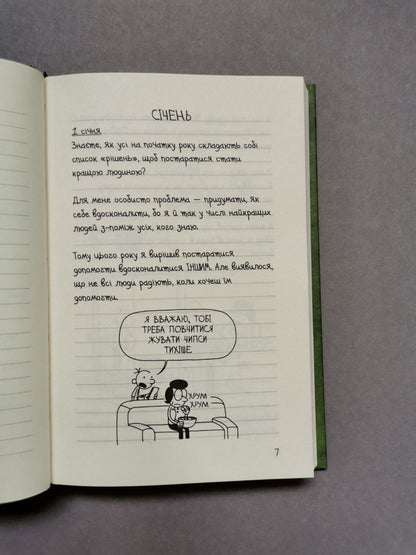 СІЧЕНЬ
1 січня
Знаєте, як усі на початку року складають собі
список «рішень», щоб постаратися стати
кращою людиною?
Для мене особисто проблема — придумати, як
себе вдосконалити, бо я й так у числі найкращих
людей з-поміж усіх, кого знаю.
Тому цього року я вирішив постаратися
допомогти вдосконалитися ІНШИМ. Але виявилося,
що не всі люди радіють, коли хочеш їм
допомогти.
Я ВВАЖАЮ, ТОБІ
ТРЕБА ПОВЧИТИСЯ
ЖУВАТИ ЧИПСИ
ТИХІШЕ.
ХРУМ
ХРУМ
7